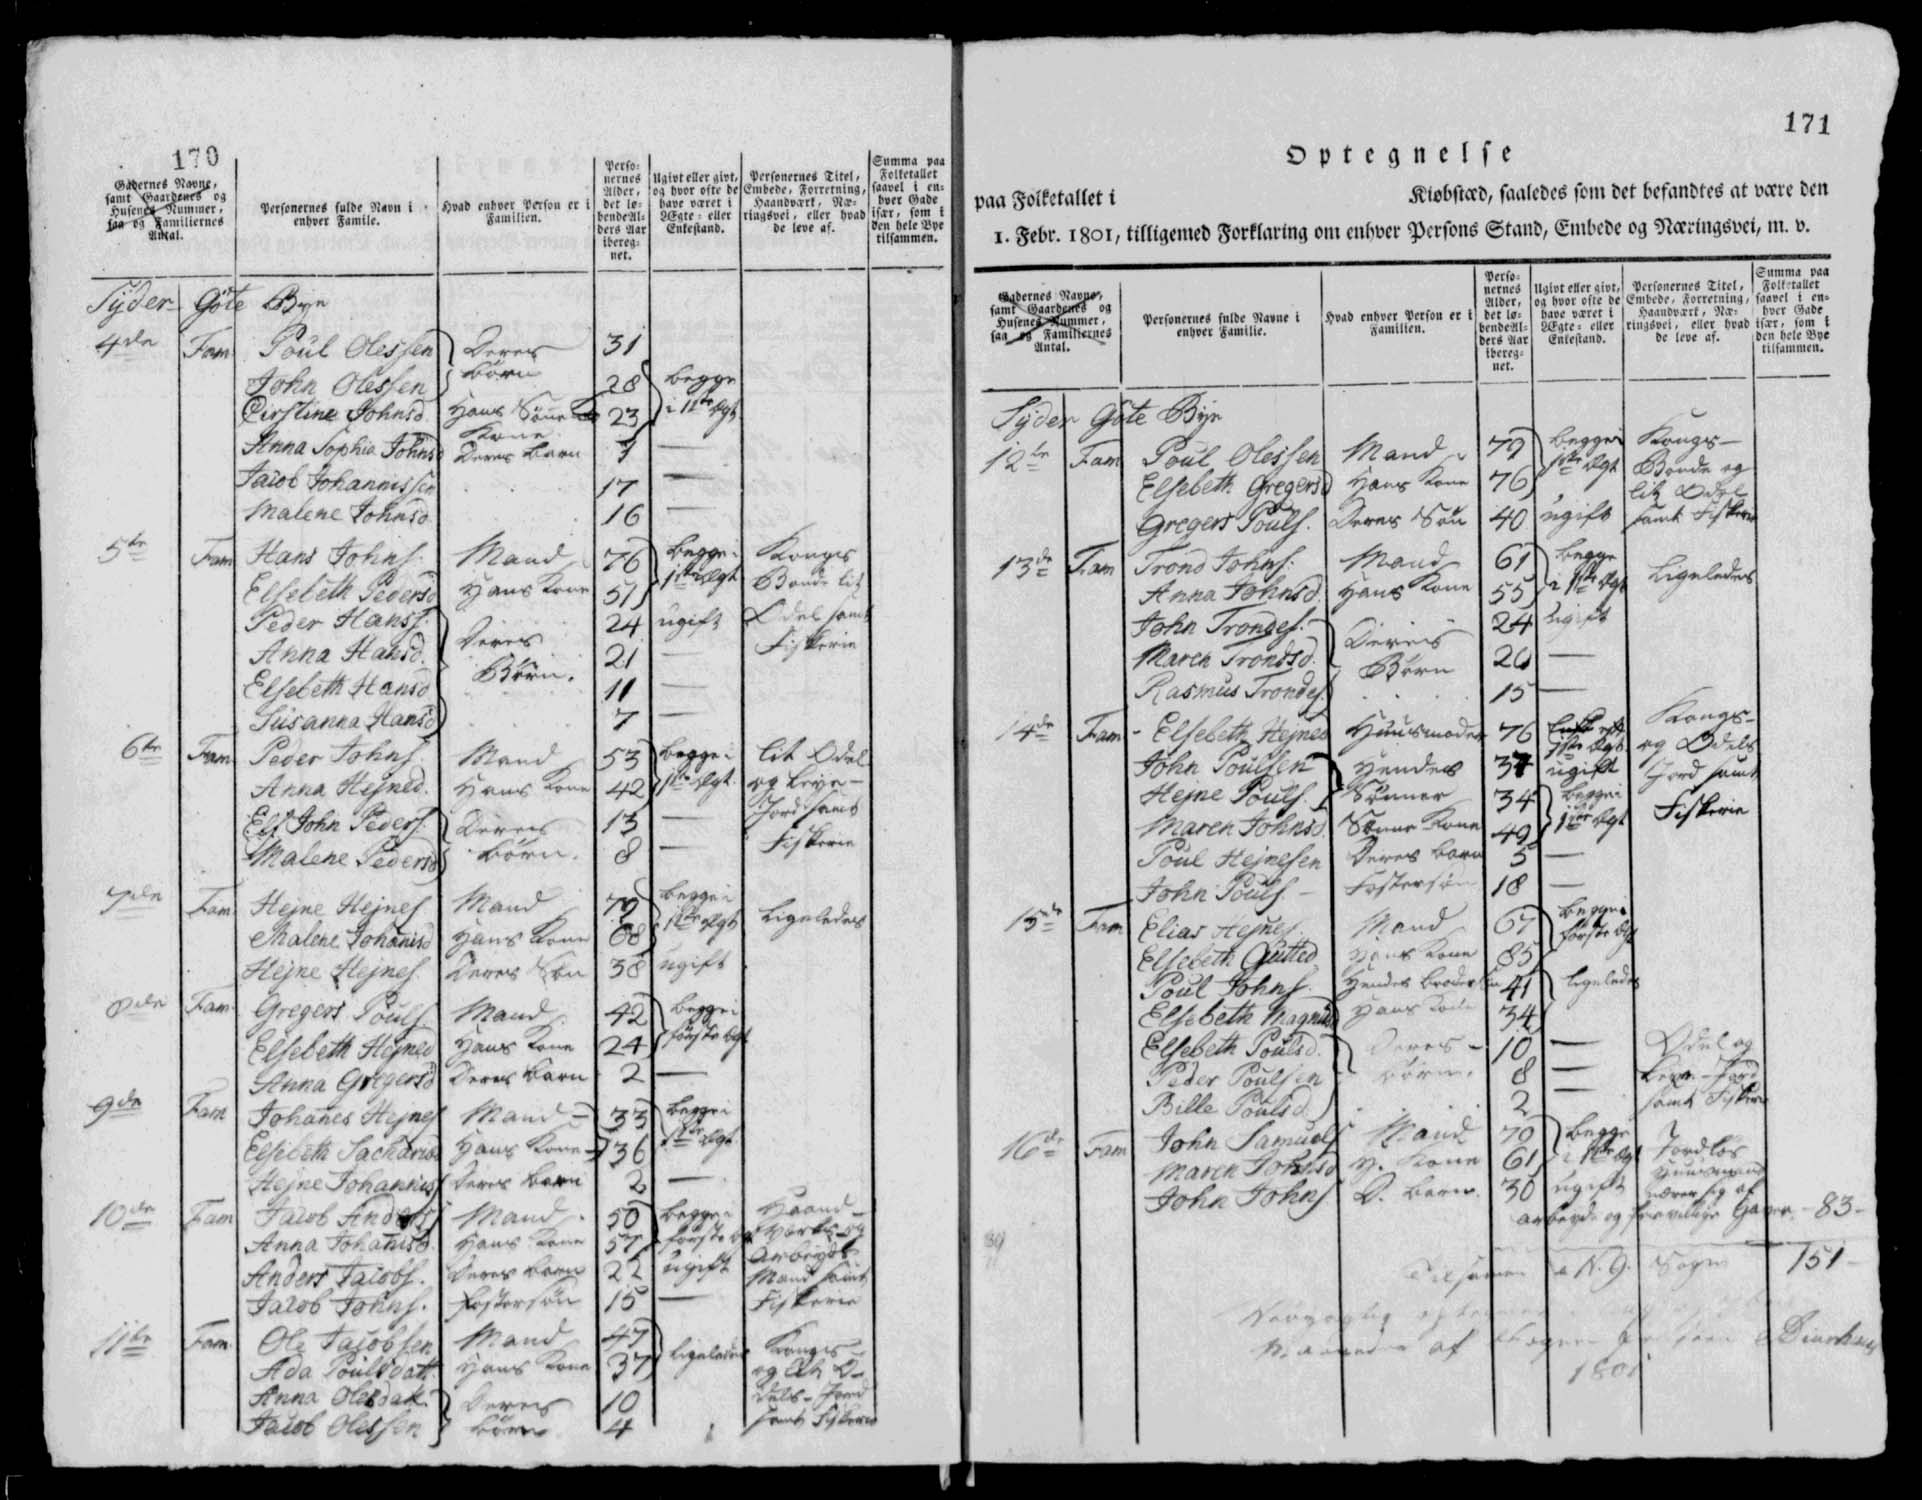 170
Gadernes Navne, samt Gaardenes og Husenes Nummer, saa og Familiernes Antal.
Personernes fulde Navn i enhver Famile.
Hvad enhver Person er i Familien.
Personernes Alder, det løbende Alders Aar iberegnet.
Ugivt eller givt, og hvor ofte de have været i Ægte- eller Enkestand.
Personernes Titel, Embede, Forretning, Haandværk, Næringsvei, eller hvad de leve af.
Summa paa Folketallet saavel i enhver Gade især, som i den hele Bye tilsammen.
Syder Göte Bye
4de Fam Poul Olessen Deres børn 31
John Olessen 28 begge
Cirstine Johnsd. Hans Søns Kone 23 i 1ste Ægt
Anna Sophia Johnsd Deres barn
Jacob Johannissen 17 —
Malene Johnsd 16 —
5te Fam Hans Johns. Mand 76 begge i Konges
Elsebeth Pedersd Hans Kone 57 1ste Ægt Bonde lit
Peder Hanss. Deres 24 ugift Odel samt
Anna Hansd. Børn. 21 — Fiskerie
Elsebeth Hansd 11 —
Susanna Hansd 7 —
6te Fam Peder Johns. Mand 53 begge i lit Odel
Anna Hejned. Hans Kone 42 1ste Ægt. og Leye-
John Peders. Deres 13 — Jord samt
Malene Pedersd børn. 8 — Fiskerie
7de Fam. Hejne Hejnes. Mand 79 begge i
Malene Johanisd Hans Kone 68 1ste Ægt Ligeledes
Hejne Hejnes. Deres Søn 38 ugift
8de Fam. Gregers Pouls Mand 42 begge i
Elsebeth Hejned Hans Kone 24 første Ægt
Anna Gregersd Deres barn 2 —
9de Fam Johanes Hejnes Mand 33 begge i
Elsebeth Sachariasd Hans Kone 36 1ste Ægt
Hejne Johannis Deres barn 2 —
10de Fam Jacob Anders Mand. 50 begge i Haand-
Anna Johanisd. Hans Kone 57 første Ægt Værks og
Anders Jacobs. Deres barn 22 ugift Arbeyds-
Jacob Johns. Fostersøn 15 — Mand samt Fiskerie
11te Fam. Ole Jacobsen Mand 47 Ligeledes Konges-
Ada Poulsdatt. Hans Kone 37 og lit O-
Anna Olesdatt. Deres 10 dels-Jord
Jacob Olessen børn 4 samt Fiskerie
171
Optegnelse
paa Folketallet i Kiøbstæd, saaledes som det befandtes at være den
1. Febr. 1801, tilligemed Forklaring om enhver Persons Stand, Embede og Næringsvei, m. v.
Gadernes Navne, samt Gaardenes og Husenes Nummer, saa og Familiernes Antal.
Personernes fulde Navne i enhver Familie.
Hvad enhver Person er i Familien.
Personernes Alder, det løbende Alders Aar iberegnet.
Ugivt eller givt, og hvor ofte de have været i Ægte- eller Enkestand.
Personernes Titel, Embede, Forretning, Haandværk, Næringsvei, eller hvad de leve af.
Summa paa Folketallet saavel i enhver Gade især, som i den hele Bye tilsammen.
Syder Göte Bye
12te Fam Poul Olessen Mand 79 begge i Kongs-
Elsebeth Gregersd Hans Kone 76 1ste Ægt Bonde og lit Odel
Gregers Pouls. Deres Søn 40 ugift samt Fiskerie
13de Fam Trond Johns. Mand 61 begge
Anna Johnsd. Hans Kone 55 i 1ste Ægt Ligeledes
John Trondes. Deres 24 Ugift
Maren Trondsd. Børn —
Rasmus Trondes. 15 —
14de Fam - Elsebeth Hejnes Huusmoder 76 1ste Ægt. Kongs-
John Poulsen Hendes 37 ugift og Odels
Hejne Pouls. Sønner 34 begge i Jord samt
Maren Johnsd. Søns Kone 49 1ste Ægt Fiskerie
Poul Hejnesen Deres barn 5 —
John Pouls. Fostersøn 18 —
15de Fam Elias Hejnes. Mand 67 begge i
Elsebeth Gutted Hans Kone 85 første Ægt
Poul Johns. Hendes broders Søn 41 Ligeledes
Elsebeth Magnusd Hans Kone 34
Elsebeth Poulsd. Deres 10 — Odel og
Peder Poulsen børn. 8 — Leye-Jord
Bille Poulsd. 2 samt Fiskerie
16de Fam John Samuels Mand 70 begge Jordløs
Maren Johnsd H. Kone 61 i 1ste Ægt Huusmand
John Johns D. barn. 30 ugift nærer sig af
arbeyde og frevillige Gaver. - 83 -
N. G. Sogn 151 -
af
1801